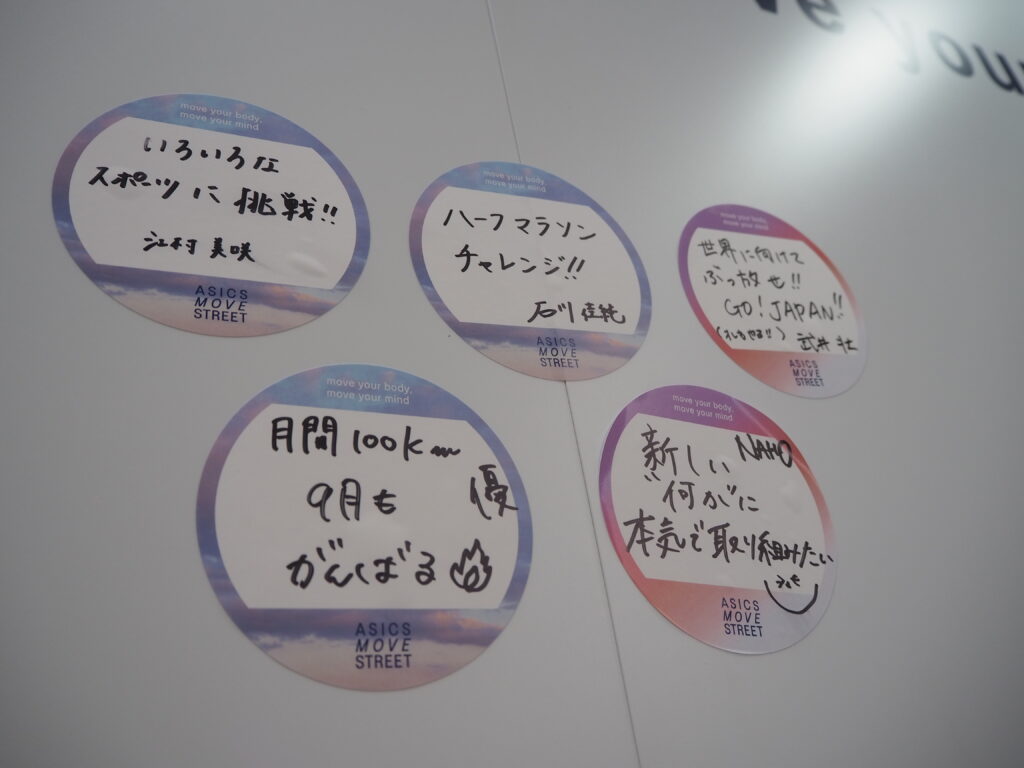 ve your
move your body,
move your mind
いろいろな
スポーツに挑戦!!
江村 美咲
ASICS
MOVE
STREET
move your body,
move your mind
ハーフマラソン
チャレンジ!!
石川 佳純
ASICS
MOVE
STREET
move your body,
move your mind
世界に向けて
ぶっ放せ!!
GO! JAPAN!!
武井 壮
ASICS
MOVE
STREET
move your body,
move your mind
月間100km
9月も 優
がんばる
ASICS
MOVE
STREET
move your body,
move your mind
新しい NAHO
何かに
本気で取り組みたい
ASICS
MOVE
STREET